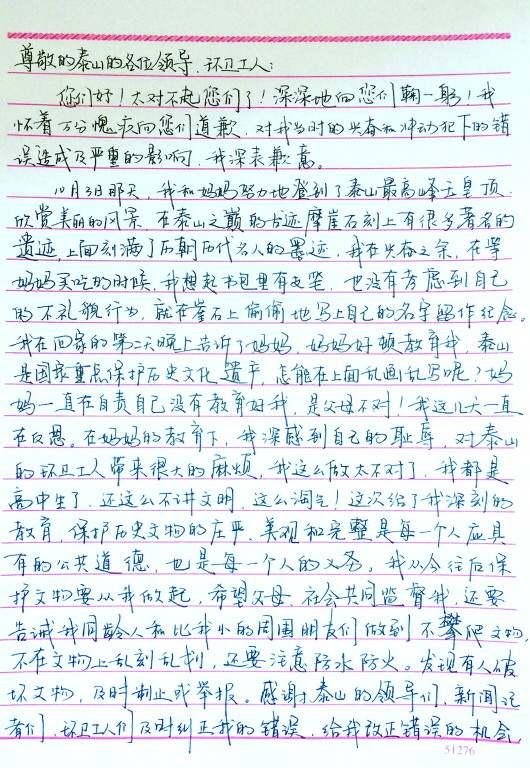 尊敬的泰山的各位领导、环卫工人：
您们好！太对不起您们了！深深地向您们鞠一躬！我
怀着万分愧疚向您们道歉，对我当时的兴奋和冲动犯下的错
误造成及严重的影响，我深表歉意。
10月3日那天，我和妈妈努力地登到了泰山最高峰玉皇顶
欣赏美丽的风景，在泰山之巅的古迹摩崖石刻上有很多著名的
遗迹，上面刻满了历朝历代名人的墨迹，我在兴奋之余，在等
妈妈买吃的时候，我想起书包里有支笔，也没有考虑到自己
的不礼貌行为，就在崖石上偷偷地写上自己的名字留作纪念。
我在回家的第二天晚上告诉了妈妈，妈妈好顿教育我，泰山
是国家重点保护历史文化遗产，怎能在上面乱画乱写呢？妈
妈一直在自责自己没有教育好我，是父母不对！我这几天一直
在反思。在妈妈的教育下，我深感到自己的耻辱，对泰山
的环卫工人带来很大的麻烦，我这么做太不对了，我都是
高中生了，还这么不讲文明，这么淘气！这次给了我深刻的
教育，保护历史文物的庄严、美观和完整是每一个人应具
有的公共道德，也是每一个人的义务。我从今往后保
护文物要从我做起，希望父母、社会共同监督我，还要
告诫我同龄人和比我小的周围朋友们做到不攀爬文物，
不在文物上乱刻乱划，还要注意防水防火。发现有人破
坏文物，及时制止或举报。感谢泰山的领导们，新闻记
者们，环卫工人们及时纠正我的错误，给我改正错误的机会
51276